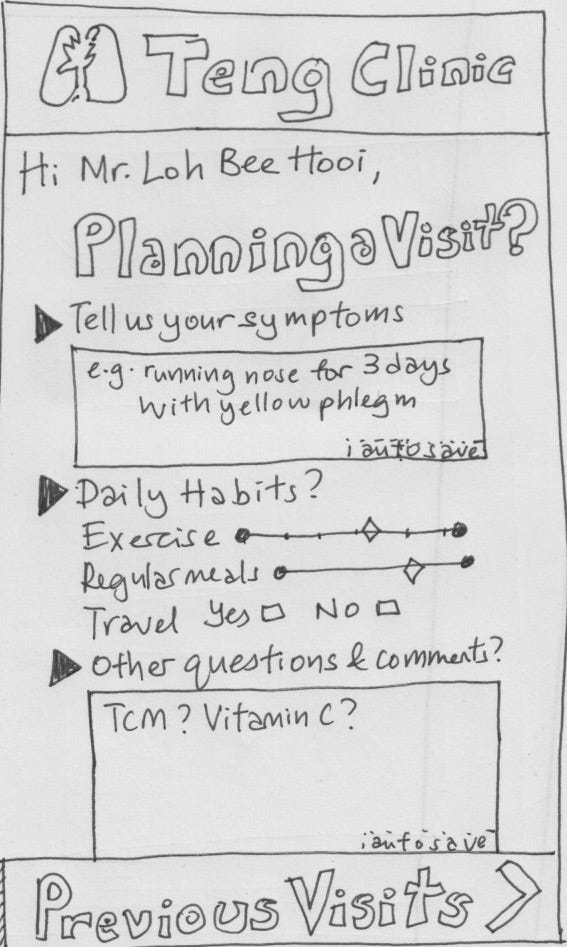 Teng Clinic
Hi Mr. Loh Bee Hooi,
Planning a Visit?
Tell us your symptoms
e.g. running nose for 3 days
with yellow phlegm
autosave
Daily Habits?
Exercise
Regular meals
Travel Yes No
Other questions & comments?
TCM? Vitamin C?
autosave
Previous Visits >